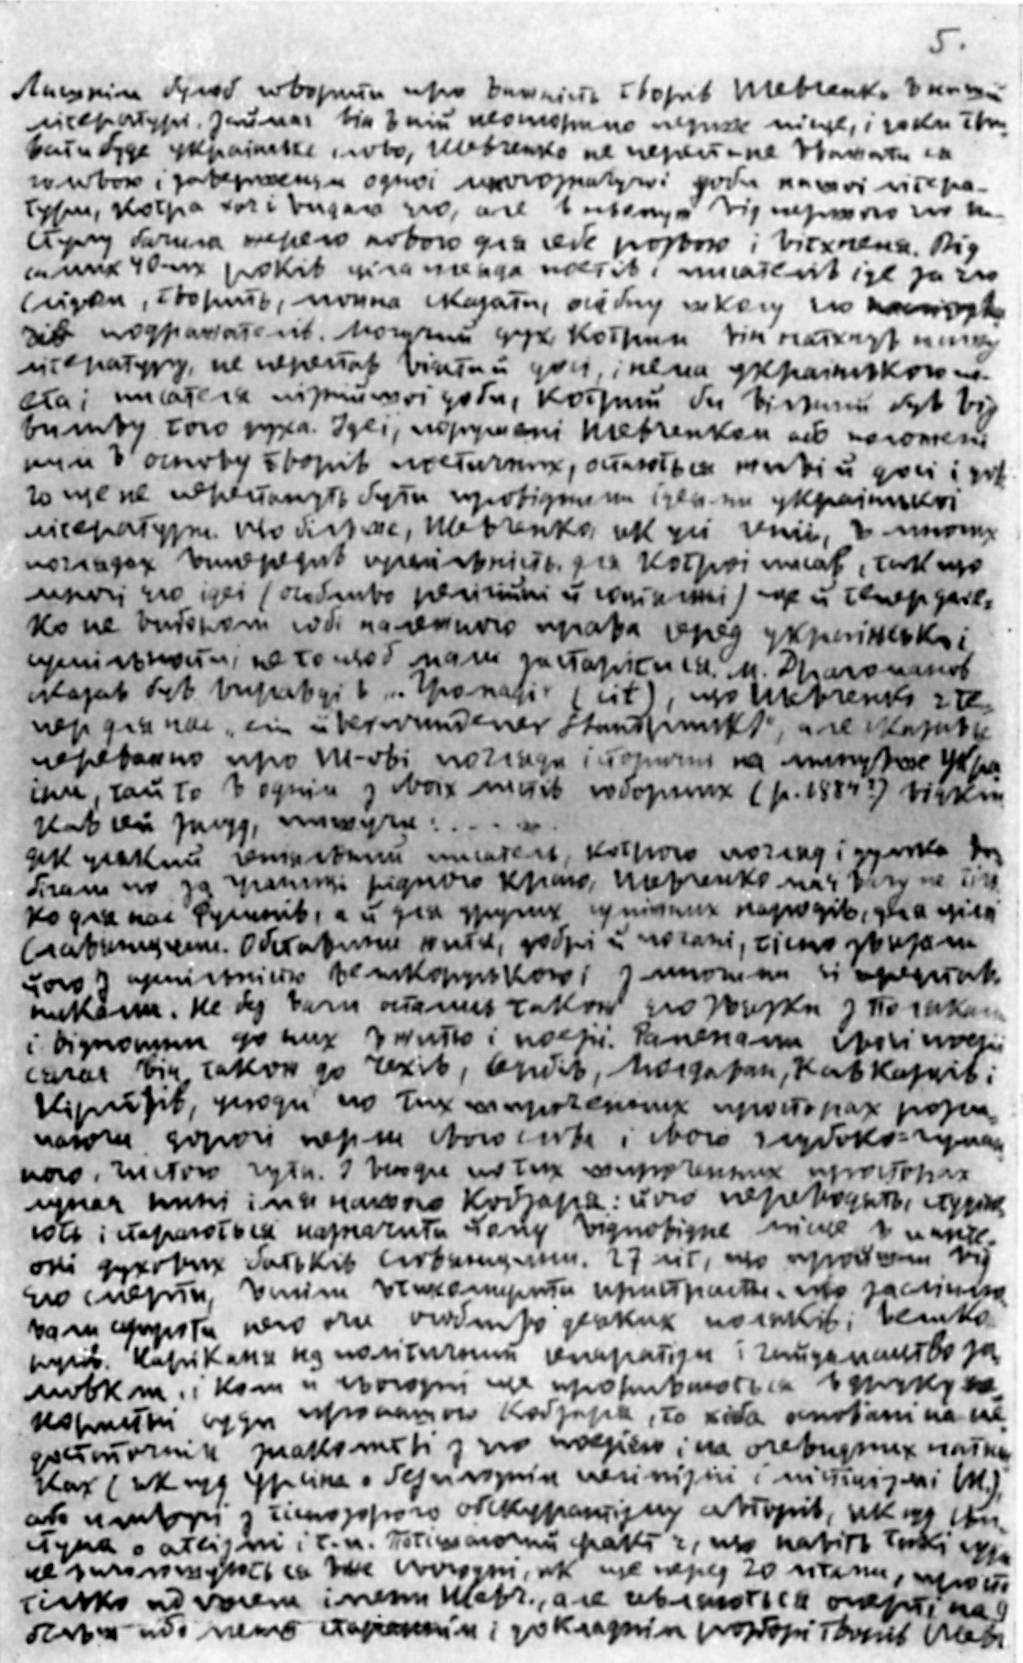 5.
Лишнім булоб говорити про важність творів Шевченка в нашій
літературі. Займає він в ній неоспоримо перше місце, і доки три-
вати буде українське слово, Шевченко не перестане вважати ся
головою і заверненєм одної многозначучої доби нашої літера-
тури, котра хоч і видала єго, але в певну від першого єго ви-
ступу бачила жерело нового для себе розвою і вітхненя. Від
самих 40-их років ціла плеяда поетів і писателів іде за єго
слідом, творить, можна сказати, осібну школу єго
подражателів. Могучий дух, котрим він наткнув нашу
літературу, не перестав віяти й досі, і нема українського по-
ета і писателя пізнійшої доби, котрий би вільний був від
впливу того духа. Ідеї, порушені Шевченком або положені
ним в основу творів поетичних, остають ся живі й досі і дов-
го ще не перестануть бути провідними ідеями української
літератури. Що більше, Шевченко, як усі генії, в многих
поглядах випередив суспільність, для котрої писав, так що
многі єго ідеї (особливо релігійні й соціяльні) ще й тепер дале-
ко не вибороли собі належного права серед української
суспільности, не то щоб мали застаріти ся. М. Драгоманов
сказав був вправді в „Громаді" (cit), що Шевченко є те-
пер для нас „ein überwundener Standpunkt", але сказав це
переважно про Ш-ові погляди історичні на минувше Укра-
їни, тай то в однім з своїх листів доборних (р. 1884?) відкли-
кав сей засуд, пишучи: . . . . .
Як усякий геніяльний писатель, котрого погляд і думка
бігали по за границі рідного краю, Шевченко має вагу не тіль-
ко для нас Русинів, а й для других сусідних народів, для цілої
Славянщини. Обставини житя, добрі й погані, тісно звязали
його з суспільністю великоруською і з многими єї представ-
никами. Не без ваги остались також єго звязки з Поляками
і відносини до них в житю і поезії. Раменами своєї поезії
сягає він також до Чехів, Сербів, Молдаван, Кавказців і
Кіргізів, усюди по тих широченних просторах розки-
даючи дорогі перли свого слова і свого глубоко-гуман-
ного, чистого чутя. І всюди по тих широченних просторах
лунає нині імя нашого Кобзаря: його переводять, студію-
ють і стараються назначити йому відповідне місце в панте-
оні духових батьків Славянщини. 27 літ, що пройшли від
єго смерти, вспіли втихомирити пристрасти, що заслінюва-
вали супроти него очи особливо деяких поляків і велико-
русів. Нарікання на політичний сепаратизм і гайдамацтво за-
мовкли, і коли й сьогодні ще прориваються в друку не-
користні суди про нашого Кобзаря, то хіба основані на не-
достаточнім знакомстві з єго поезією і на очевидних натяж-
ках (як суд Урсіна о безплоднім песімізмі і містицизмі Ш.),
або плинучі з тіснозорого обскурантизму авторів, як суд
о атеізмі і т. и. Потішаючий факт є, що навіть такі суди
не виголошують ся вже сьогодні, як ще перед 20 літами, просто
тілько над голим іменем Шевч., але являються оперті на
більш або менш старанним і докладним розборі творів Шев-